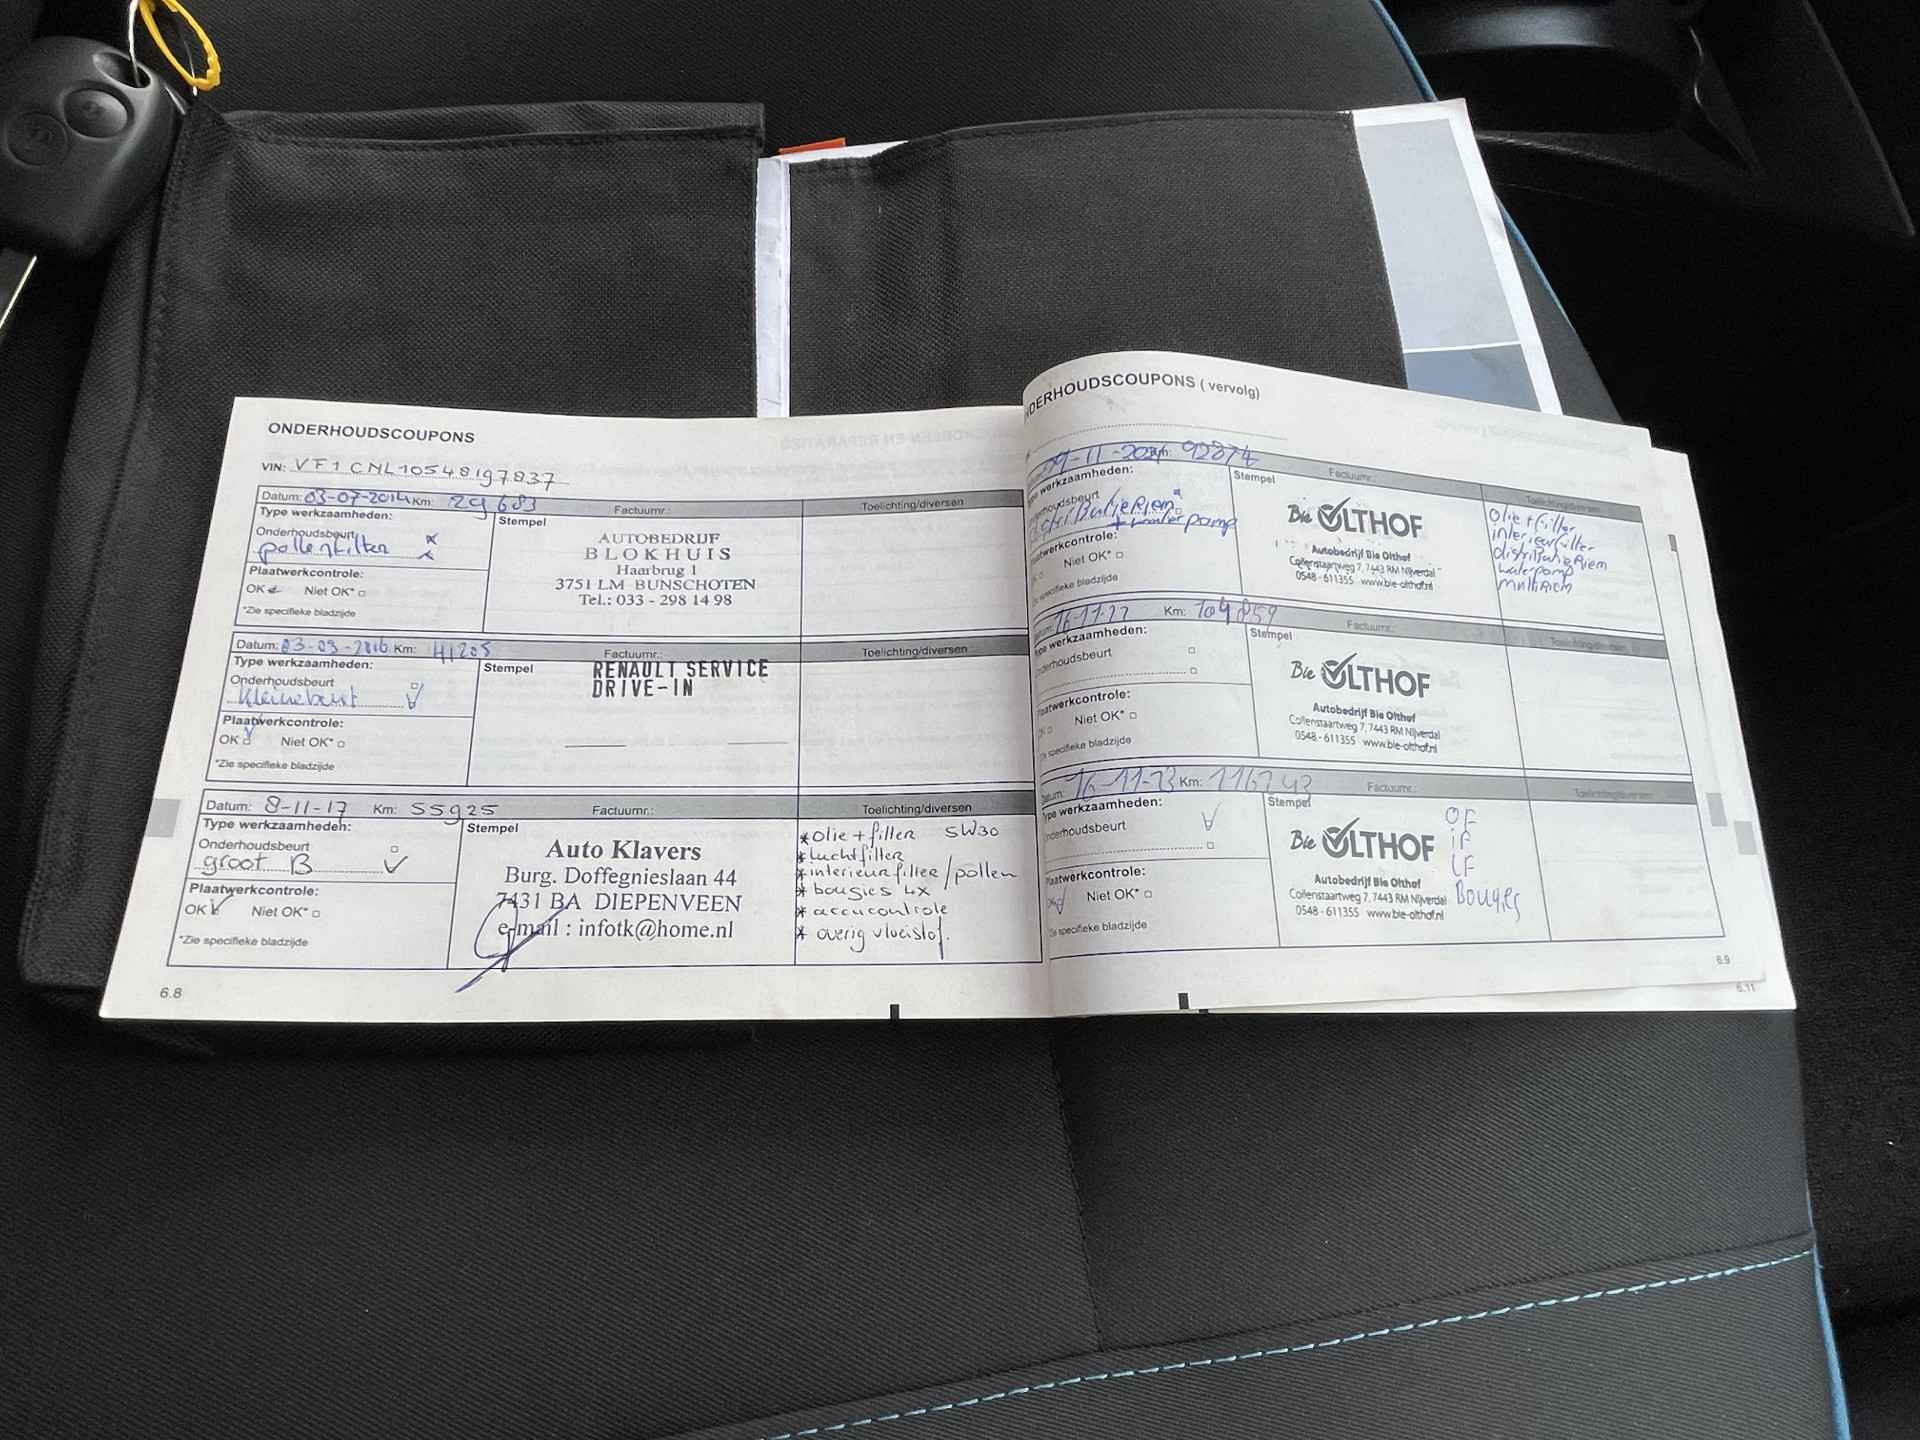 ONDERHOUDSCOUPONS
VIN: VF1CNL10548197837
Datum: 03-07-2014 Km: 29683 Factuurnr.: Toelichting/diversen
Type werkzaamheden:
Stempel
Onderhoudsbeurt
pollenfilter
Plaatwerkcontrole:
OK Niet OK*
*Zie specifieke bladzijde
AUTOBEDRIJF
BLOKHUIS
Haarbrug 1
3751 LM BUNSCHOTEN
Tel.: 033 - 298 14 98
Datum: 03-09-2016 Km: 41205 Factuurnr.: Toelichting/diversen
Type werkzaamheden:
Stempel
Onderhoudsbeurt
kleinebeurt
Plaatwerkcontrole:
OK Niet OK*
*Zie specifieke bladzijde
RENAULT SERVICE
DRIVE-IN
Datum: 8-11-17 Km: 55925 Factuurnr.: Toelichting/diversen
Type werkzaamheden:
Stempel
Onderhoudsbeurt
groot B
Plaatwerkcontrole:
OK Niet OK*
*Zie specifieke bladzijde
Auto Klavers
Burg. Doffegnieslaan 44
7431 BA DIEPENVEEN
e-mail : infotk@home.nl
* olie + filter 5W30
* luchtfilter
* interieurfilter/pollen
* bougies 4x
* accucontrole
* overig vloeistof.
6.8
ONDERHOUDSCOUPONS ( vervolg)
Km: 92874 Factuurnr.: Toelichting/diversen
Type werkzaamheden:
Stempel
Onderhoudsbeurt
distributieriem
+ waterpomp
Plaatwerkcontrole:
OK Niet OK*
*Zie specifieke bladzijde
Bie OLTHOF
Autobedrijf Bie Olthof
Collenstaartweg 7, 7443 RM Nijverdal
0548 - 611355 www.bie-olthof.nl
olie + filter
interieurfilter
distributieriem
waterpomp
multiriem
Datum: 16-11-22 Km: 104859 Factuurnr.: Toelichting/diversen
Type werkzaamheden:
Stempel
Onderhoudsbeurt
Plaatwerkcontrole:
OK Niet OK*
*Zie specifieke bladzijde
Bie OLTHOF
Autobedrijf Bie Olthof
Collenstaartweg 7, 7443 RM Nijverdal
0548 - 611355 www.bie-olthof.nl
Datum: 16-11-23 Km: 116743 Factuurnr.: Toelichting/diversen
Type werkzaamheden:
Stempel
Onderhoudsbeurt
Plaatwerkcontrole:
OK Niet OK*
*Zie specifieke bladzijde
Bie OLTHOF
Autobedrijf Bie Olthof
Collenstaartweg 7, 7443 RM Nijverdal
0548 - 611355 www.bie-olthof.nl
OF
iF
LF
Bougies
6.9
6.11